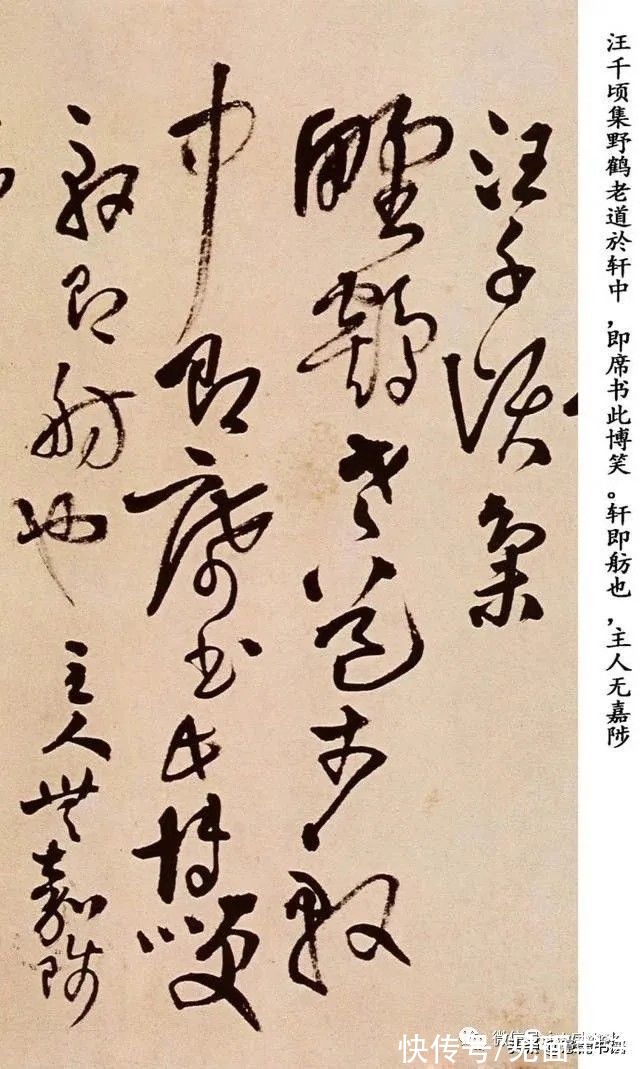 汪千顷集野鹤老道於轩中,即席书此博笑。轩即舫也,主人无嘉陟
汪千頃集
野鶴老道於軒
中即席書此博笑
軒即舫也 主人無嘉陟
快传号/